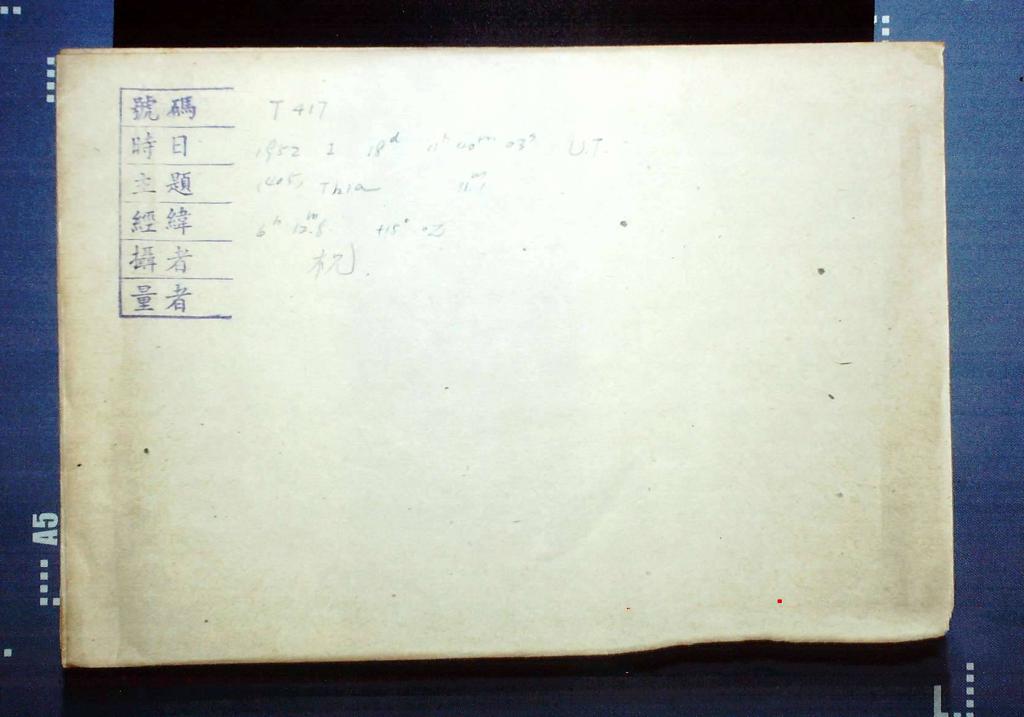 號碼 T 417
時日 1952 I 18d 11h 40m 03s U.T.
主題 (405) Thia 11m.1
經緯 6h 12m.8 +15°
攝者 祝
量者
A5